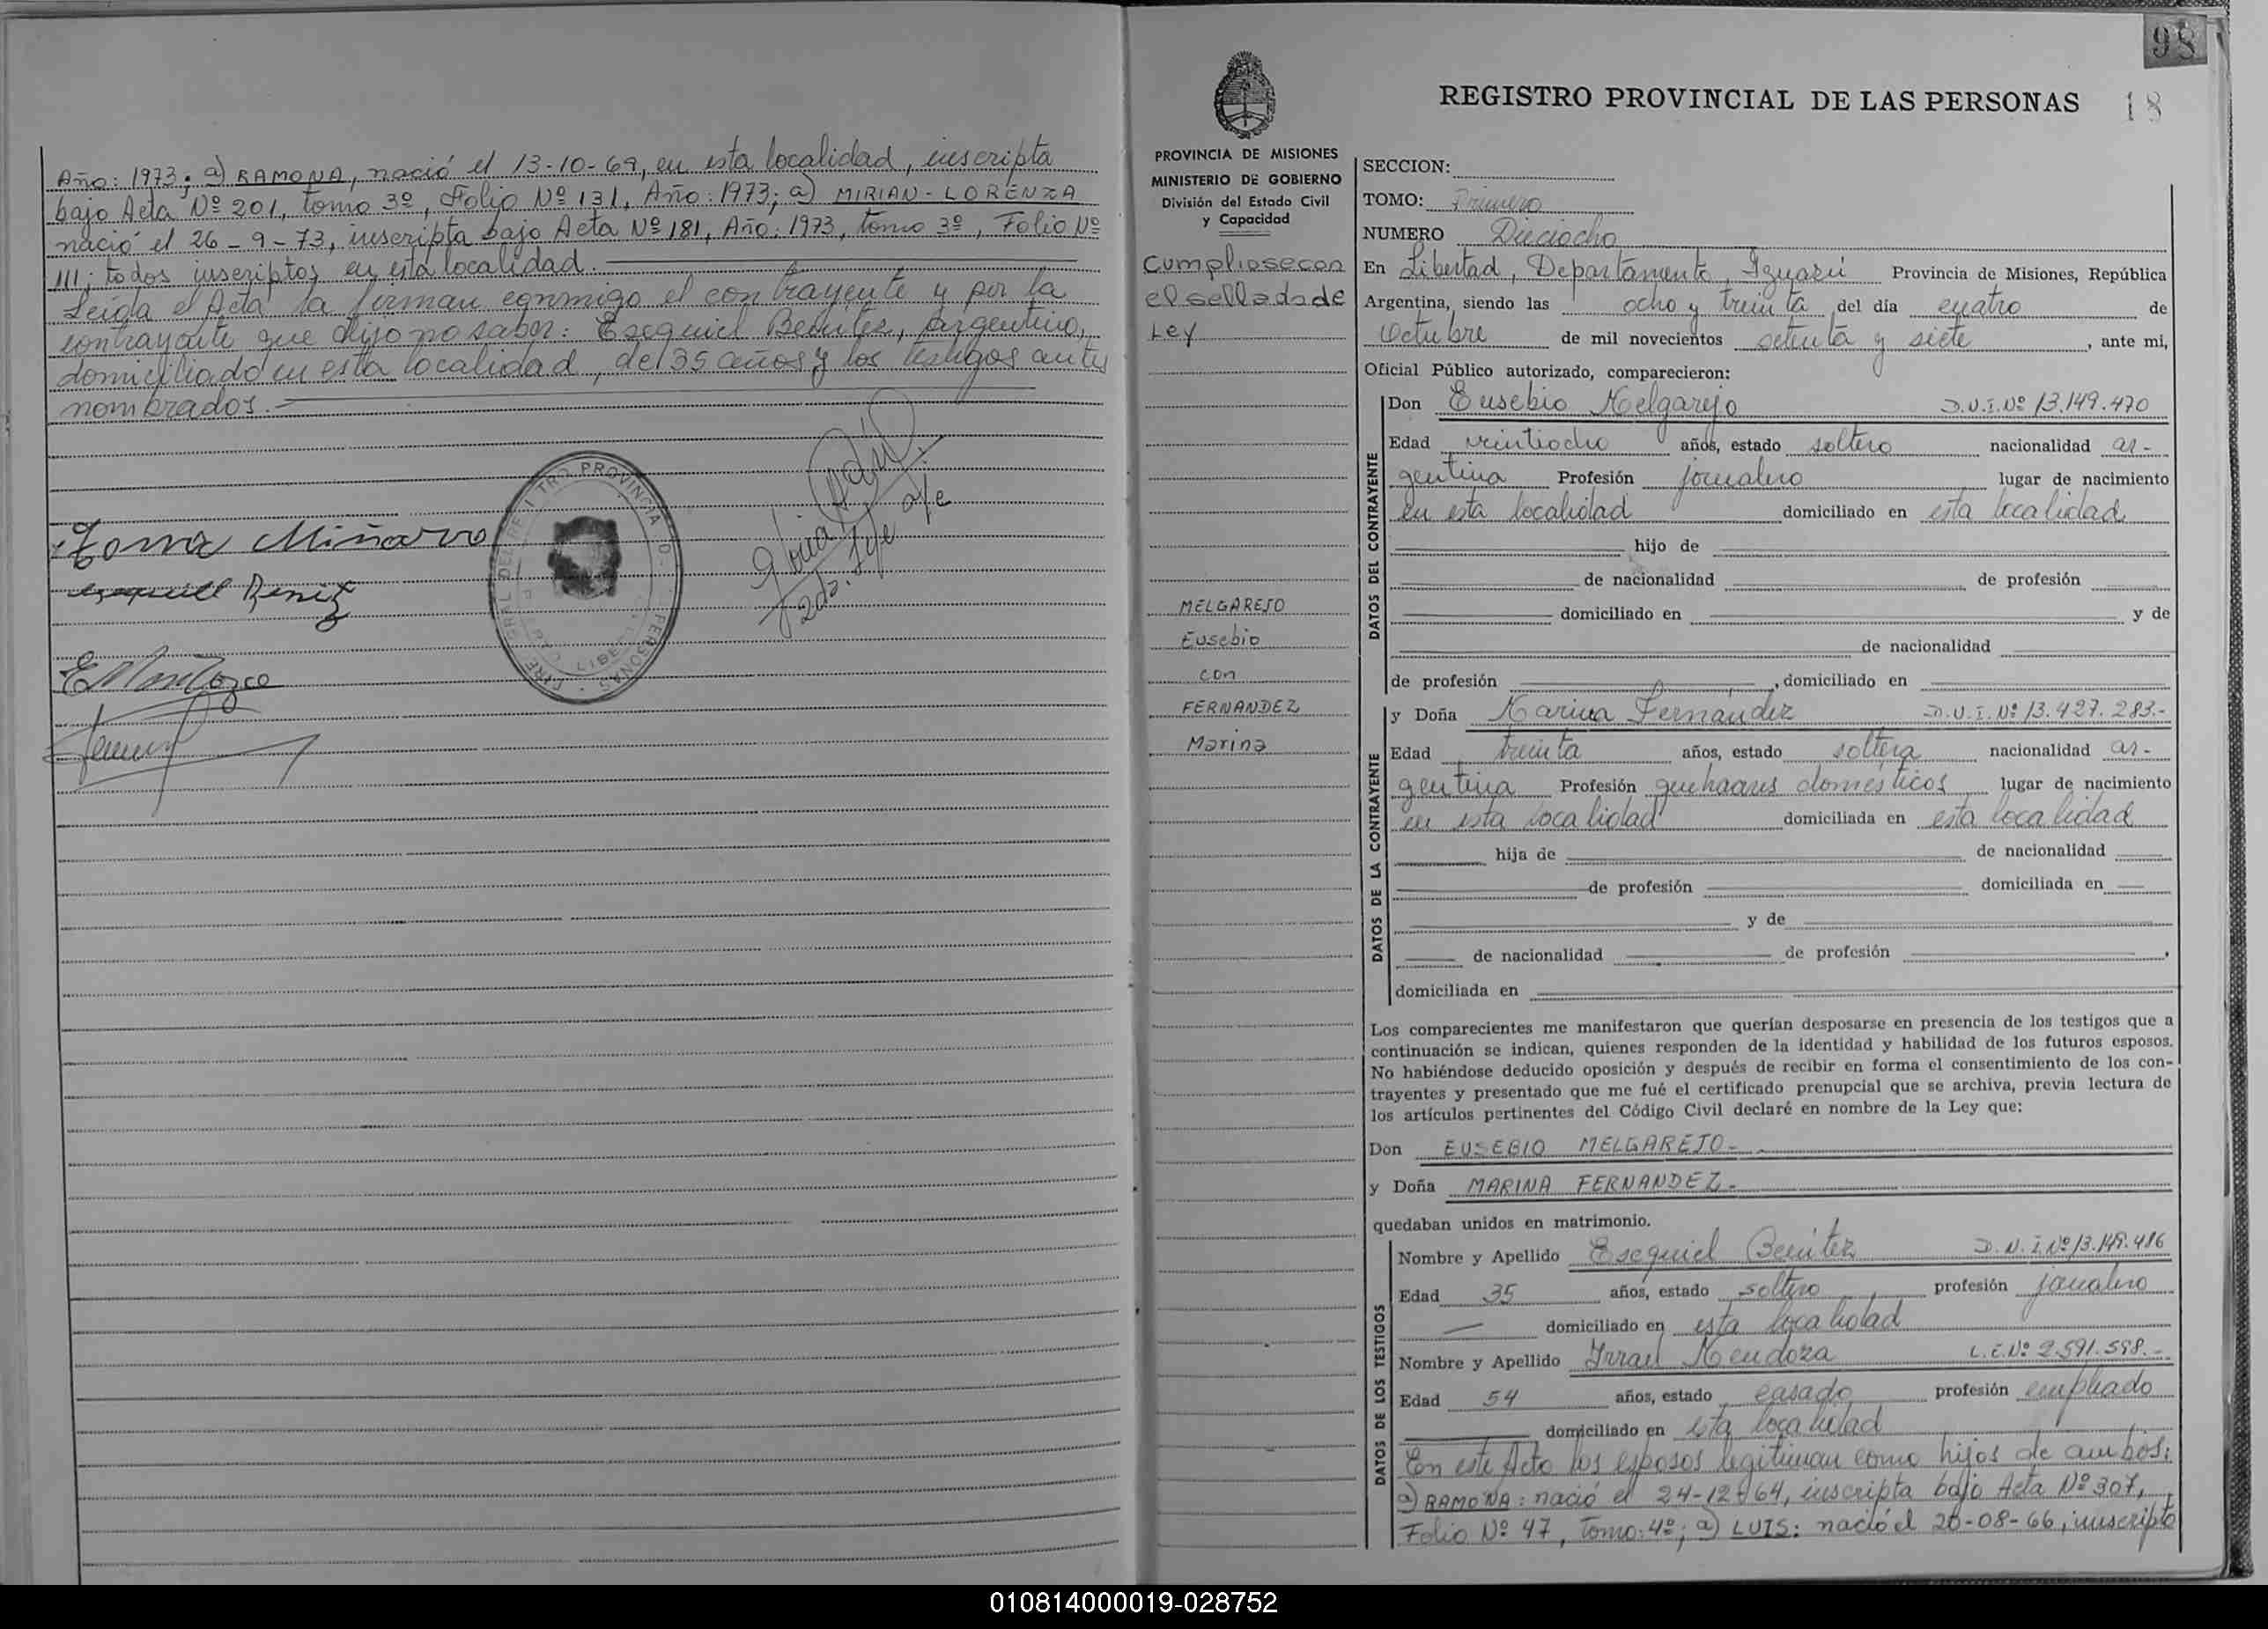 Año: 1973; a) RAMONA, nació el 13-10-69, en esta localidad, inscripta
bajo Acta Nº 201, tomo 3º, Folio Nº 131, Año: 1973; a) MIRIAN-LORENZA
nació el 26-9-73, inscripta bajo Acta Nº 181, Año: 1973, tomo 3º, Folio Nº
111; todos inscriptos en esta localidad.
Leída el Acta la firman conmigo el contrayente y por la
contrayente que dijo no saber: Esequiel Benitez, argentino,
domiciliado en esta localidad, de 35 años y los testigos antes
nombrados.
Miñarro
Esequiel Benitez
98
REGISTRO PROVINCIAL DE LAS PERSONAS 18
PROVINCIA DE MISIONES
MINISTERIO DE GOBIERNO
División del Estado Civil
y Capacidad
Cumpliose con
el sellado de
Ley
MELGAREJO
Eusebio
con
FERNANDEZ
Marina
SECCION:
TOMO: Primero
NUMERO Dieciocho
En Libertad, Departamento Iguazú Provincia de Misiones, República
Argentina, siendo las ocho y treinta del día cuatro de
Octubre de mil novecientos setenta y siete, ante mi,
Oficial Público autorizado, comparecieron:
DATOS DEL CONTRAYENTE
Don Eusebio Melgarejo D.N.I. Nº 13.149.470
Edad veintiocho años, estado soltero nacionalidad ar-
gentina Profesión jornalero lugar de nacimiento
en esta localidad domiciliado en esta localidad
hijo de
de nacionalidad de profesión
domiciliado en y de
de nacionalidad
de profesión , domiciliado en
DATOS DE LA CONTRAYENTE
y Doña Marina Fernández D.N.I. Nº 13.427.283.-
Edad treinta años, estado soltera nacionalidad ar-
gentina Profesión quehaceres domésticos lugar de nacimiento
en esta localidad domiciliada en esta localidad
hija de de nacionalidad
de profesión domiciliada en
y de
de nacionalidad de profesión ,
domiciliada en
Los comparecientes me manifestaron que querían desposarse en presencia de los testigos que a
continuación se indican, quienes responden de la identidad y habilidad de los futuros esposos.
No habiéndose deducido oposición y después de recibir en forma el consentimiento de los con-
trayentes y presentado que me fué el certificado prenupcial que se archiva, previa lectura de
los artículos pertinentes del Código Civil declaré en nombre de la Ley que:
Don EUSEBIO MELGAREJO-
y Doña MARINA FERNANDEZ-
quedaban unidos en matrimonio.
DATOS DE LOS TESTIGOS
Nombre y Apellido Esequiel Benitez D.N.I. Nº 13.149.486
Edad 35 años, estado soltero, profesión jornalero
domiciliado en esta localidad
Nombre y Apellido Israel Mendoza L.E. Nº 2.591.598.-
Edad 54 años, estado casado profesión empleado
domiciliado en esta localidad
En este Acto los esposos legitiman como hijos de ambos:
a) RAMONA: nació el 24-12-64, inscripta bajo Acta Nº 307,
Folio Nº 47, Tomo: 4º; a) LUIS: nació el 26-08-66, inscripto
010814000019-028752